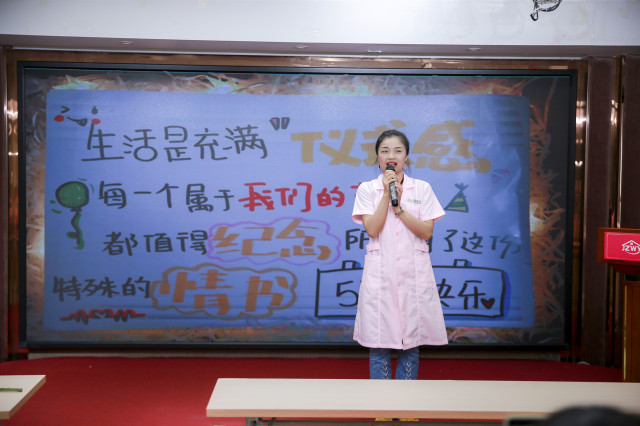 "生活是充满"仪式感
每一个属于我们的
都值得纪念,所 了这份
特殊的情书 5 快乐
JZWY